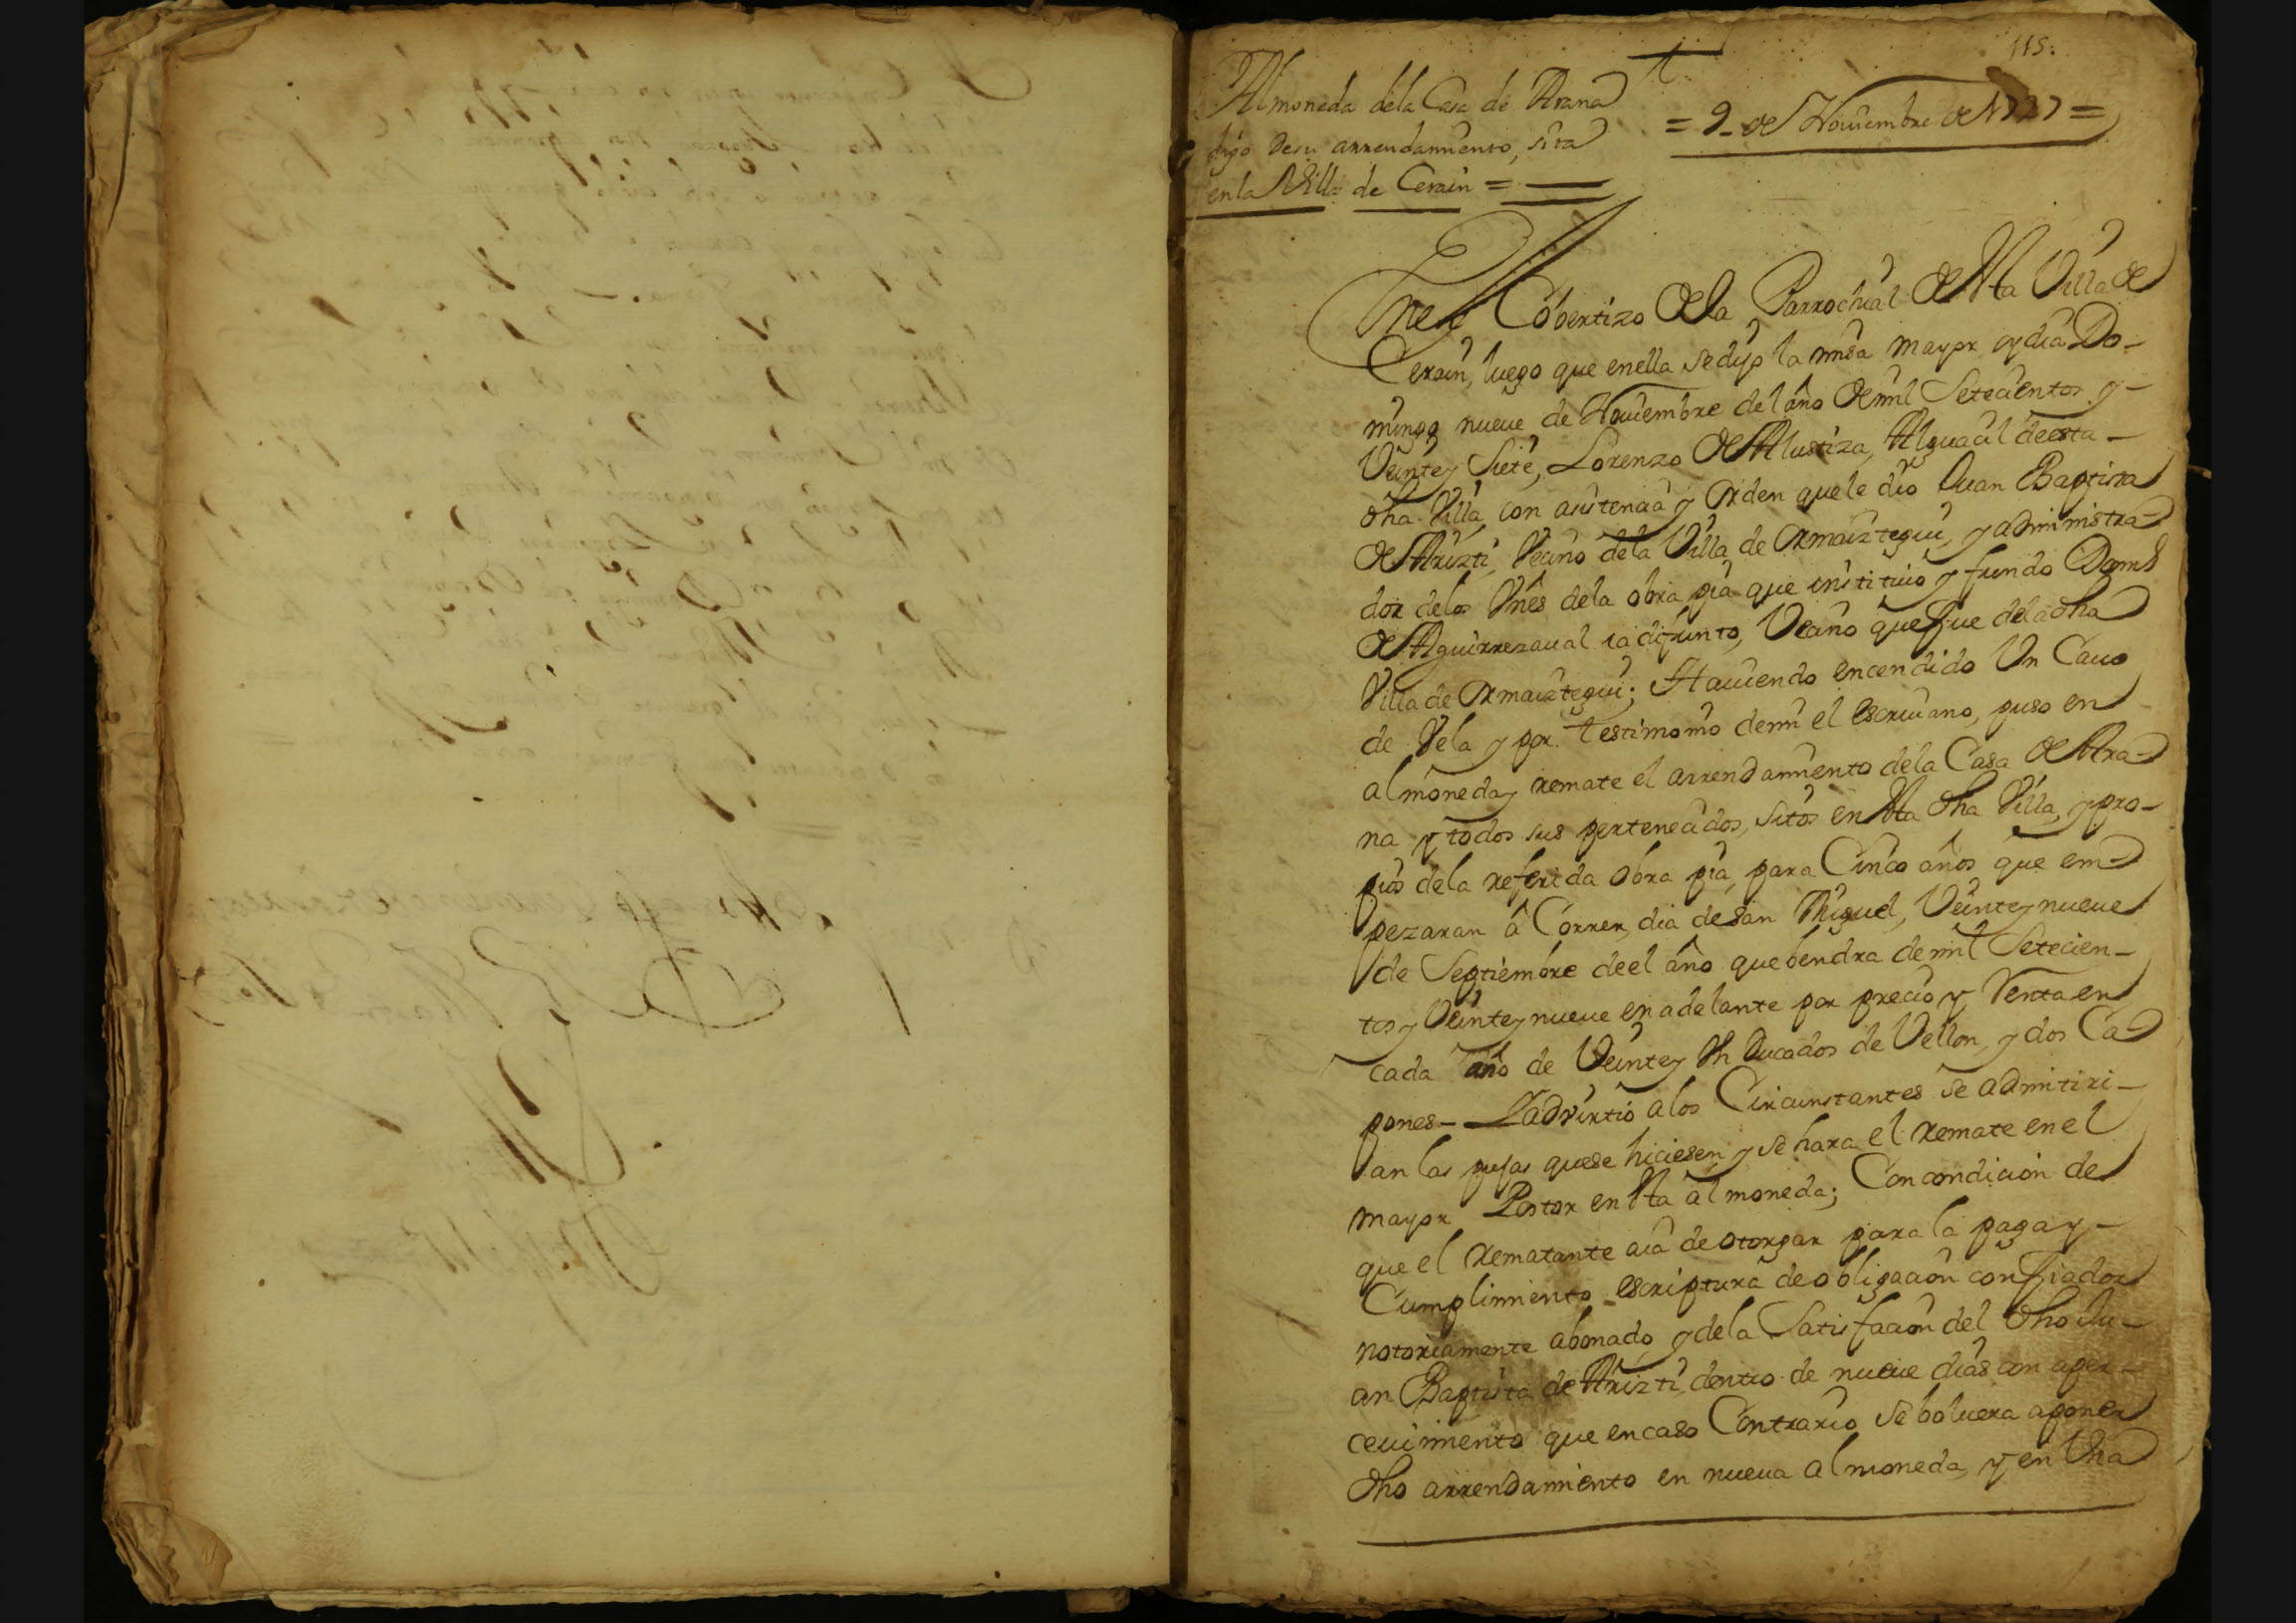 115.
Almoneda dela Casa de Arana
digo de su arrendamiento, sita
en la Villa de Cerain =
= 9 de Nouiembre de 1727 =
En el Cobertizo de la Parrochial de esta Villa de
Cerain, luego que en ella se dijo la misa mayor oy dia Do-
mingo nueue de Nouiembre del año de mil Setecientos y-
Veinte y Siete, Lorenzo de Alustiza, Alguacil de esta-
dha Villa, con asistencia y orden que le dio Juan Baptista
de Arizti, Vecino dela Villa de Ormaiztegui, y administra-
dor delos Vnes dela obra pia que instituio y fundo Doml
de Aguirrezaual ia difunto, Vecino que fue dela dha
Villa de Ormaiztegui; Hauiendo encendido Un Cauo
de Vela y por testimonio demi el escriuano, puso en
almoneda y remate el arrendamiento dela Casa de Ara-
na y todos sus pertenecidos, sitos en esta dha Villa, y pro-
pios dela referida obra pia, para Cinco años que em-
pezaran â Correr, dia de san Miguel, Veinte y nueue
de Septiembre de el año que bendra de mil Setecien-
tos y Veinte y nueue en adelante por precio y Renta en
cada año de Veinte y Un Ducados de Vellon, y dos Ca-
pones- Y advirtio alos Circunstantes se admitiri-
an las pujas que se hiciesen y se hara el remate en el
mayor Postor en esta almoneda; Con condicion de
que el rematante aia de otorgar para la paga y-
Cumplimiento escriptura de obligacion con fiador
notoriamente abonado, y dela Satisfacion del dho Ju-
an Baptista de Arizti, dentro de nueue dias con aper-
ceuimiento que en caso Contrario se boluera a poner
dho arrendamiento en nueua almoneda, y en Vna